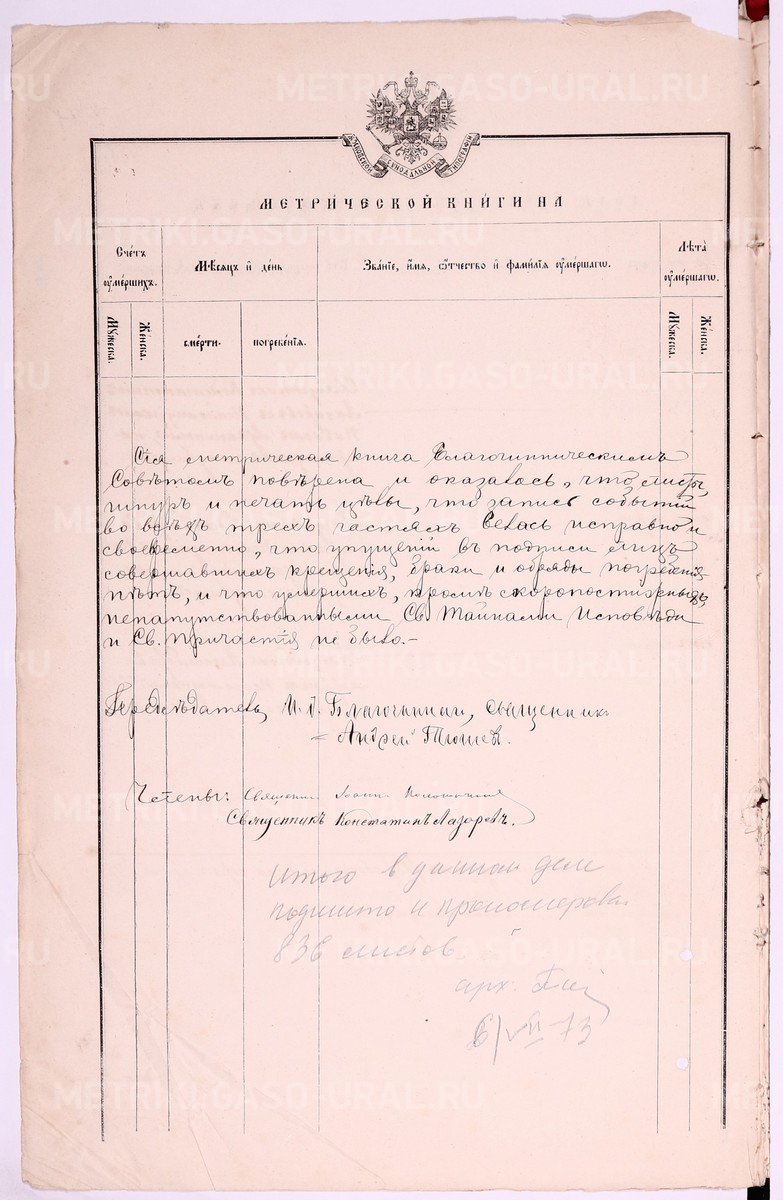 METRIKI.GASO-URAL.RU
МОСКОВСКОЙ СѴНОДАЛЬНОЙ ТИПОГРАФІИ
МЕТРИ́ЧЕСКОЙ КНИ́ГИ НА
Сче́тъ ᲂу҆ме́ршихъ.
Мѣ́сяцъ и҆ де́нь
Зва́нїе, и҆́мя, ѻ҆́тчество и҆ фами́лїя ᲂу҆ме́ршагѡ.
Лѣ́та ᲂу҆ме́ршагѡ.
Мꙋ́жеска.
Же́нска.
сме́рти.
погребе́нїя.
Мꙋ́жеска.
Же́нска.
Сія метрическая книга Благочинническимъ
Совѣтомъ повѣрена и оказалось, что листы,
шнуръ и печать цѣлы, что запись событій
во всѣхъ трехъ частяхъ велась исправно и
своевременно, что упущеній въ подписи лицъ
совершавшихъ крещенія, браки и обряды погребенія
нѣтъ, и что умершихъ, кромѣ скоропостижныхъ,
ненапутствованными Св. Тайнами Исповѣди
и Св. Причастія не было.-
Предсѣдатель, И. д. Благочиннаго, священникъ
Андрей
Члены: Священ. Іоаннъ
Священникъ Константинъ Лазаревъ.
Итого в данном деле
подшито и пронумерова
836 листов.
арх.
6/VII-73